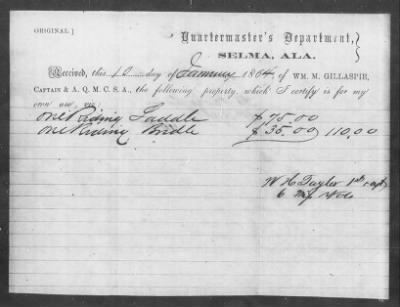 ORIGINAL]
Quartermaster's Department,
SELMA, ALA.
Received, this 12 day of January 1864 of WM. M. GILLASPIE,
CAPTAIN & A. Q. M. C. S. A., the following property, which I certify is for my
own use, viz:
one Riding Saddle $75.00
one Riding Bridle $35.00 110.00
W H Taylor 1st